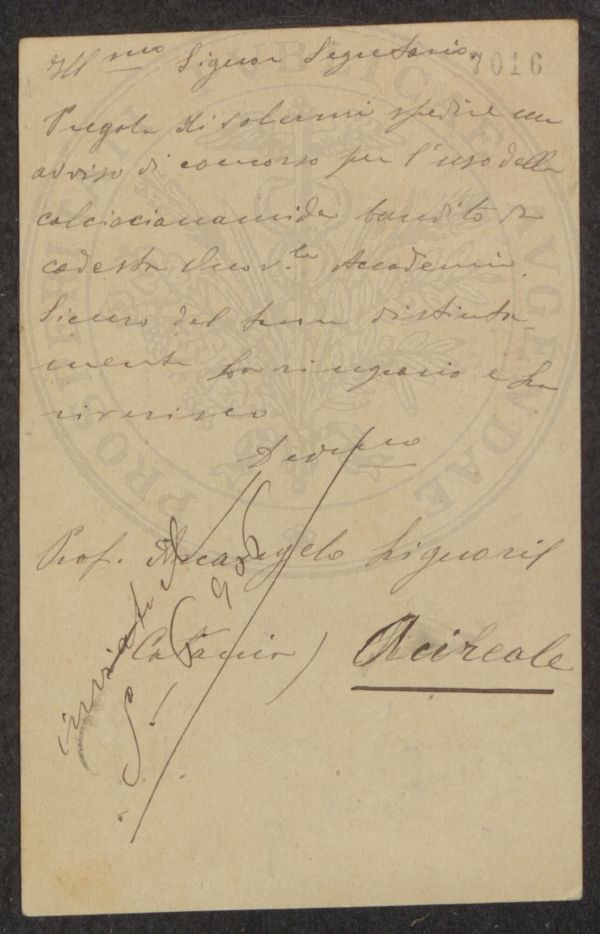 Ill.mo Signor Segretario,
7016
Pregola di volermi spedire un
avviso di concorso per l'uso della
calciocianamide bandito da
codesta Accademia.
Sicuro del favore distinta-
mente La ringrazio e La
riverisco
Dev.mo
Prof. Arcangelo Liguori
(Catania) Acireale
inviato il
PROSPERITATI PVBLICAE AVGENDAE